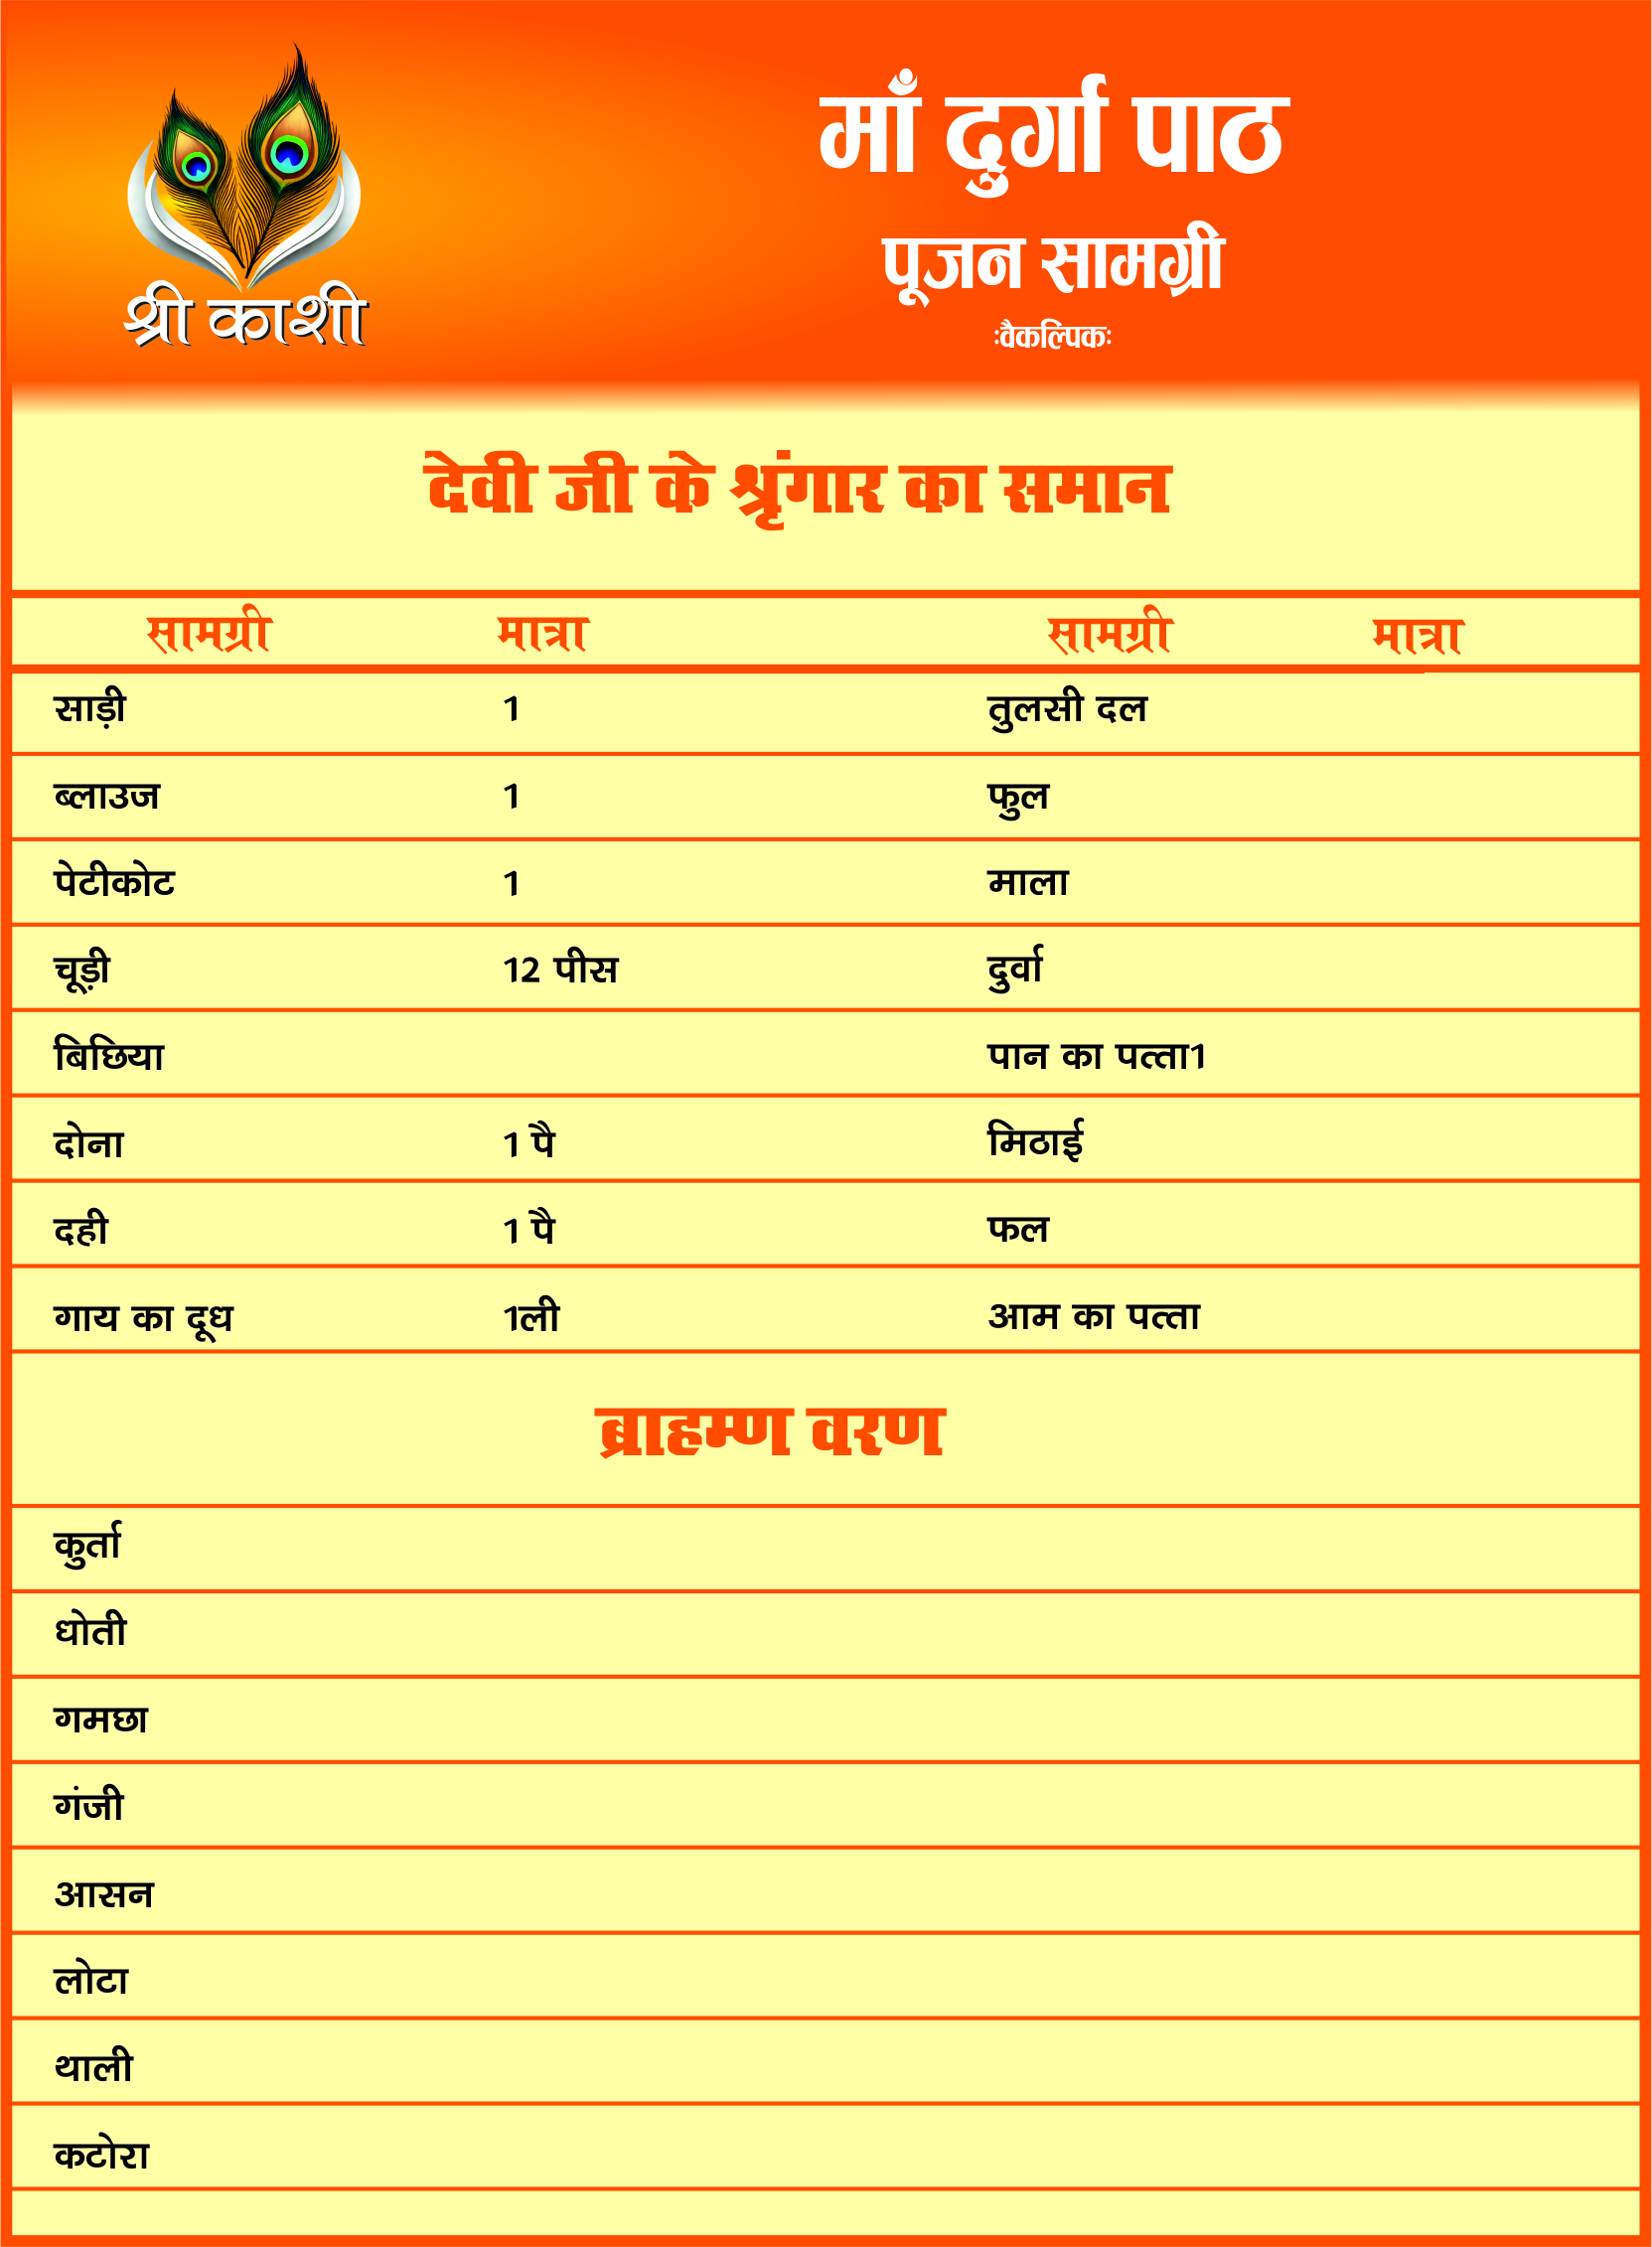 श्री काशी
माँ दुर्गा पाठ
पूजन सामग्री
:वैकल्पिक:
देवी जी के श्रृंगार का समान
सामग्री मात्रा सामग्री मात्रा
साड़ी 1 तुलसी दल
ब्लाउज 1 फुल
पेटीकोट 1 माला
चूड़ी 12 पीस दुर्वा
बिछिया पान का पत्ता1
दोना 1 पै मिठाई
दही 1 पै फल
गाय का दूध 1ली आम का पत्ता
ब्राहम्ण वरण
कुर्ता
धोती
गमछा
गंजी
आसन
लोटा
थाली
कटोरा